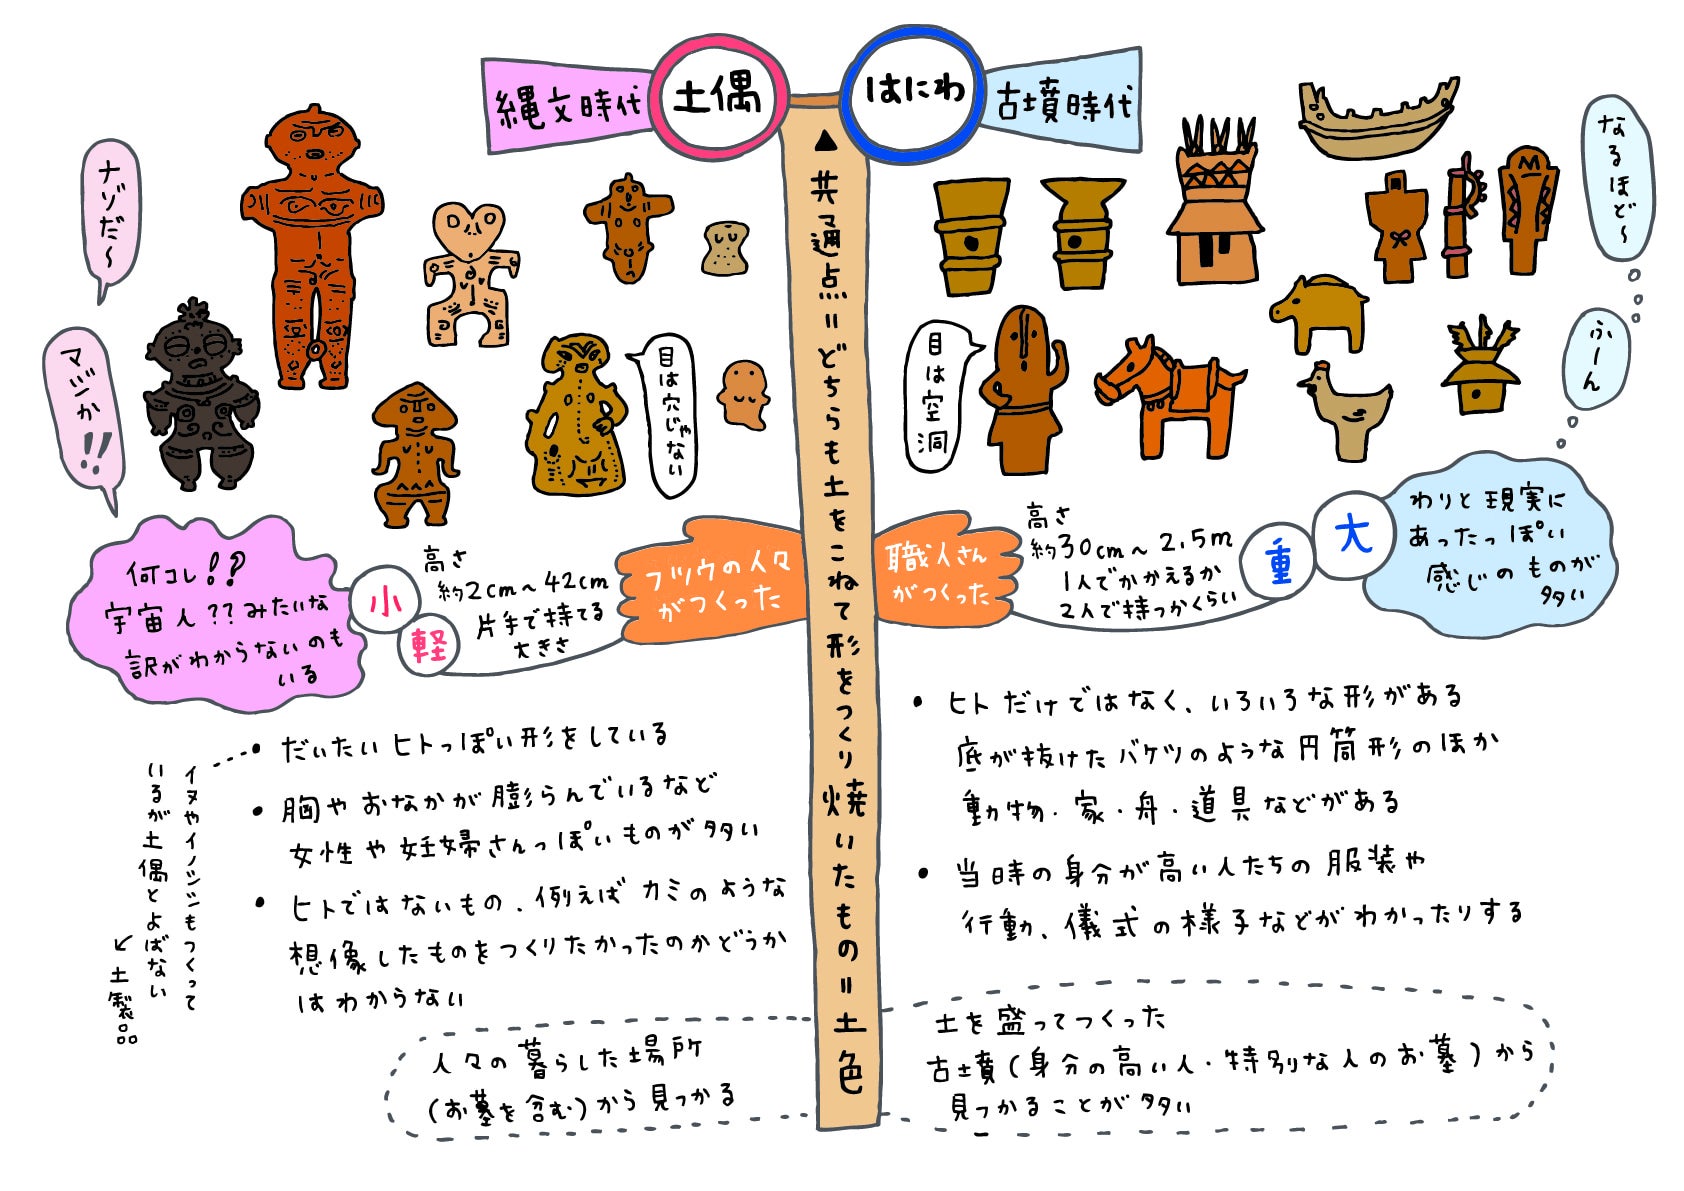 縄文時代
土偶
はにわ
古墳時代
ナゾだ〜
マジか!!
目は穴じゃない
▲共通点=どちらも土をこねて形をつくり焼いたもの=土色
目は空洞
なるほど〜
ふーん
何コレ!?
宇宙人??みたいな
訳がわからないのも
いる
小
軽
高さ
約2cm〜42cm
片手で持てる
大きさ
フツウの人々
がつくった
職人さん
がつくった
高さ
約30cm〜2.5m
1人でかかえるか
2人で持つかくらい
重
大
わりと現実に
あったっぽい
感じのものが
多い
・だいたいヒトっぽい形をしている
イヌやイノシシもつくって
いるが土偶とよばない
↙土製品
・胸やおなかが膨らんでいるなど
女性や妊婦さんっぽいものが多い
・ヒトではないもの、例えばカミのような
想像したものをつくりたかったのかどうか
はわからない
人々の暮らした場所
(お墓を含む)から見つかる
・ヒトだけではなく、いろいろな形がある
底が抜けたバケツのような円筒形のほか
動物・家・舟・道具などがある
・当時の身分が高い人たちの服装や
行動、儀式の様子などがわかったりする
土を盛ってつくった
古墳(身分の高い人・特別な人のお墓)から
見つかることが多い